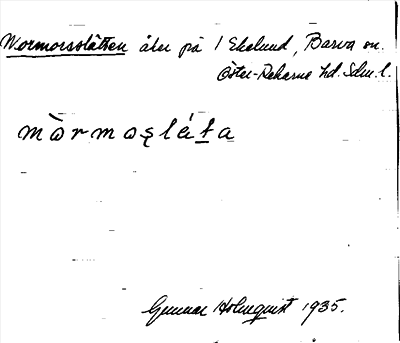 Mormorsslåtten åker på 1 Ekelund, Barva sn.
Öster-Rekarne hd. Sdm. l.
mòrmoşláta
Gunnar Holmquist 1935.